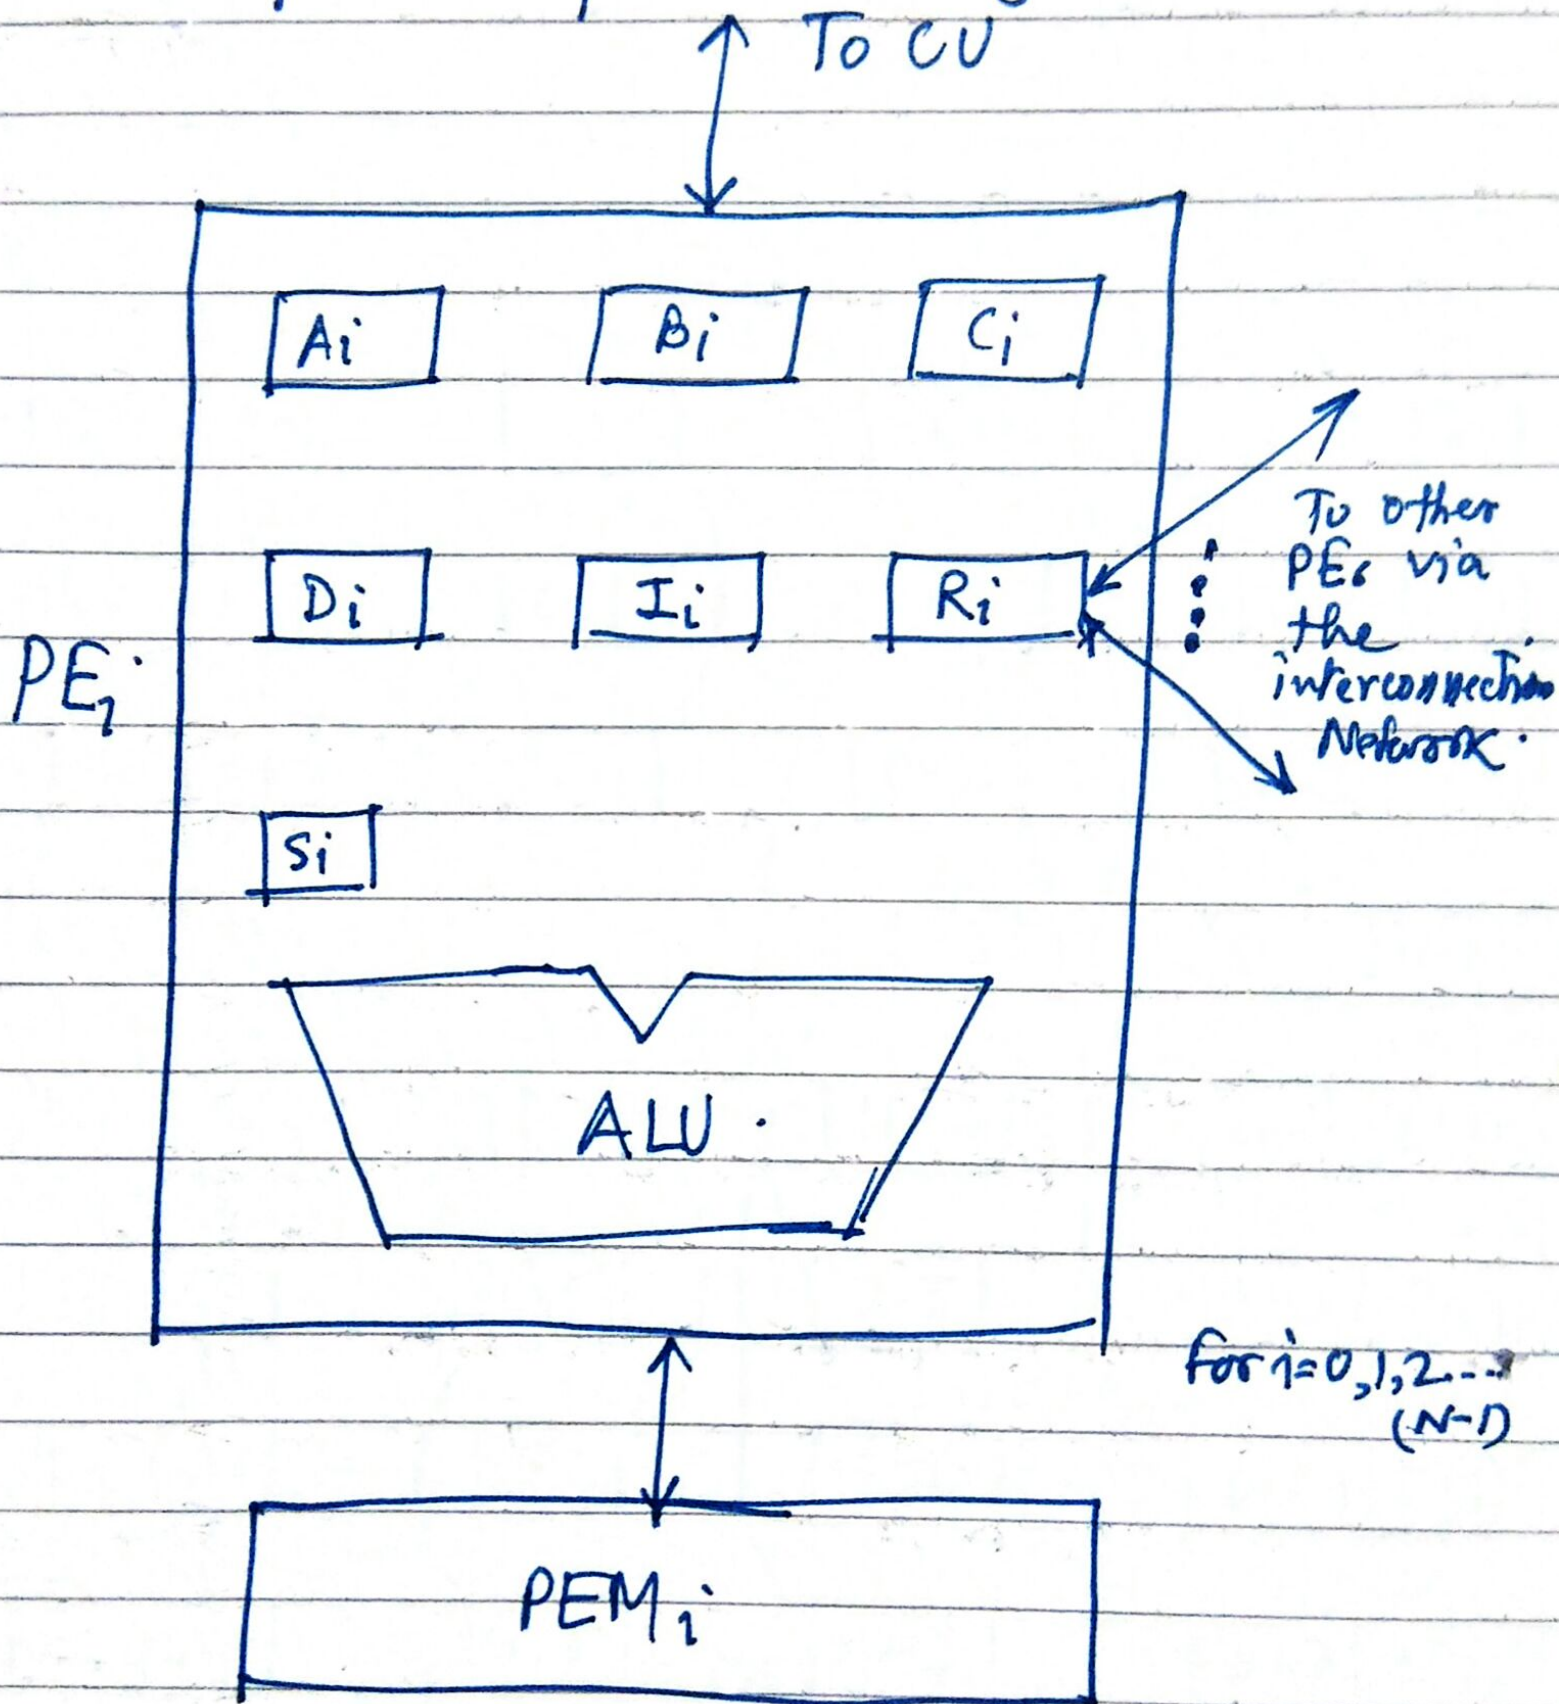 To CU
Ai Bi Ci
Di Ii Ri
To other
PEs via
the
interconnection
Network.
PEi
Si
ALU.
for i=0,1,2...
(N-1)
PEMi